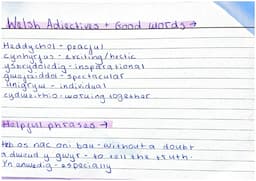 Welsh Adjectives + Good words →
Heddychol - peaceful
cynhyrfus - exciting/hectic
ysbrydoledig - inspirational
gweigreiddiol - spectacular
unigryw - individual
cydweithio - working together
Helpful phrases →
Heb os nac oni bau - without a doubt
a dweud y gwyr - to tell the truth.
Yn enwedig - especially